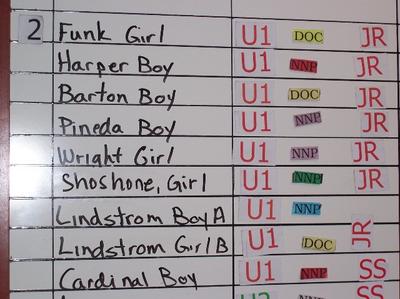 2 Funk Girl U1 DOC JR
Harper Boy U1 NNP JR
Barton Boy U1 DOC JR
Pineda Boy U1 NNP JR
Wright Girl U1 NNP JR
Shoshone, Girl U1 NNP JR
Lindstrom Boy A U1 NNP
Lindstrom Girl B U1 DOC JR
Cardinal Boy U1 NNP SS